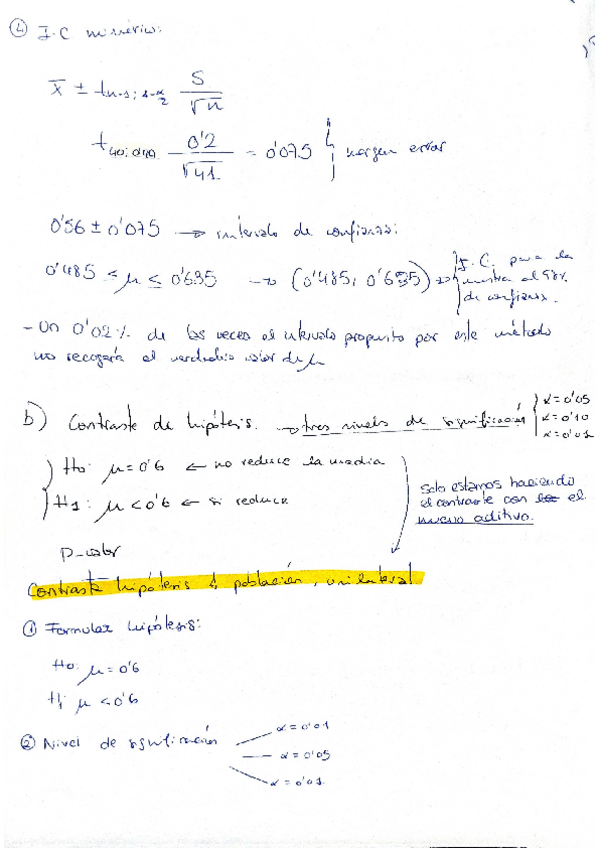 ④ I.C numérico:
x̄ ± tn-1; 1-α/2 S/√n
t40; 0'99 0'2/√41 = 0'075 } margen error
0'56 ± 0'075 → intervalo de confianza:
0'485 ≤ μ ≤ 0'635 → (0'485; 0'635) → I.C. para la
muestra al 98%
de confianza.
- Un 0'02% de las veces el intervalo propuesto por este método
no recogería el verdadero valor de μ
b) Contraste de hipótesis. → tres niveles de significación { α=0'05
α=0'10
α=0'01
H0: μ=0'6 ← no reduce la media
H1: μ<0'6 ← si reduce
Solo estamos haciendo
el contraste con el
nuevo aditivo.
P-valor
Contraste hipótesis 1 población, unilateral
① Formular hipótesis:
H0: μ=0'6
H1: μ<0'6
② Nivel de significación
α=0'01
α=0'05
α=0'01